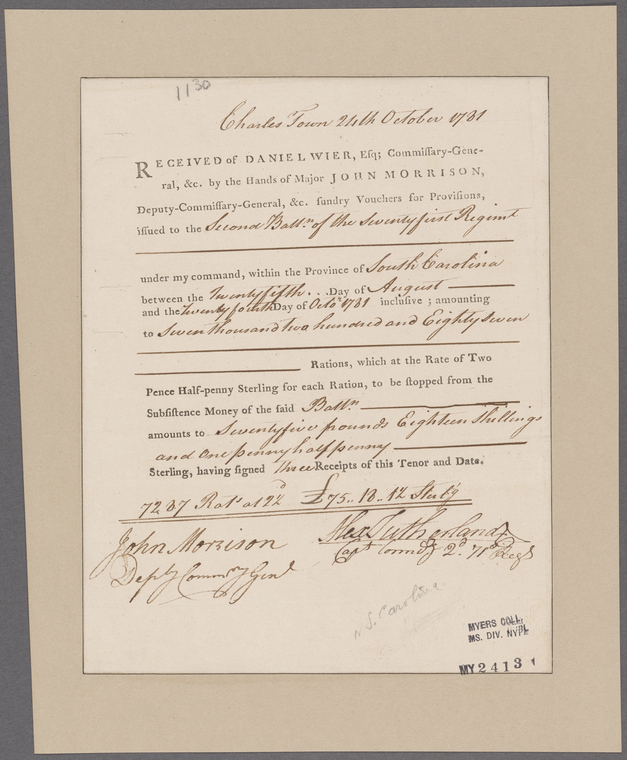 1130
Charles Town 24th October 1781
RECEIVED of DANIEL WIER, Esq; Commissary-Gene-
ral, &c. by the Hands of Major JOHN MORRISON,
Deputy-Commissary-General, &c. sundry Vouchers for Provisions,
issued to the Second Battn. of the Seventyfirst Regimt
under my command, within the Province of South Carolina
between the Twentyfifth . . . Day of August
and the Twentyfourth Day of Octor 1781 inclusive; amounting
to Seven thousand two hundred and Eighty Seven
Rations, which at the Rate of Two
Pence Half-penny Sterling for each Ration, to be stopped from the
Subsistence Money of the said Battn.
amounts to Seventyfive pounds Eighteen Shillings
and One penny half penny
Sterling, having signed three Receipts of this Tenor and Date.
7287 Rats at 2½d £75.. 18.. 1½ Sterlg
John Morrison
Alex Sutherland
Depty Commry Genl
Capt Commdg 2d. 71st Regt
S. Carolina.
MYERS COLL.
MS. DIV. NYPL
MY 2413